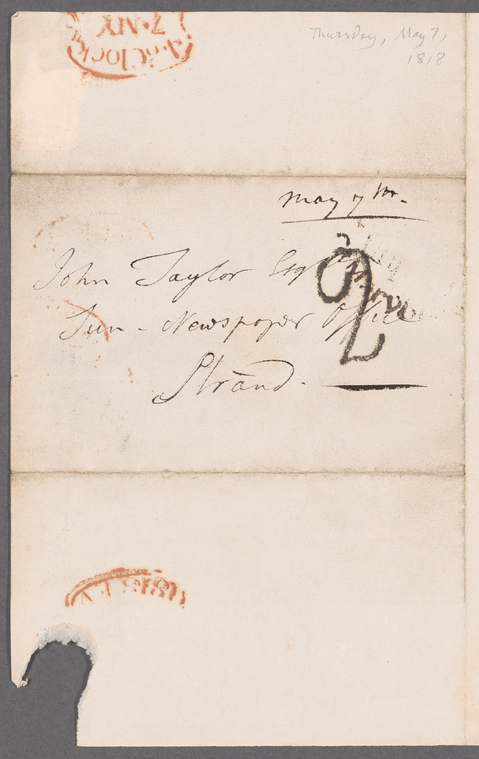 7. MY
Thursday, May 7,
1818
May 7th.
John Taylor Esqr
Sun-Newspaper Office
Strand.
2
1818